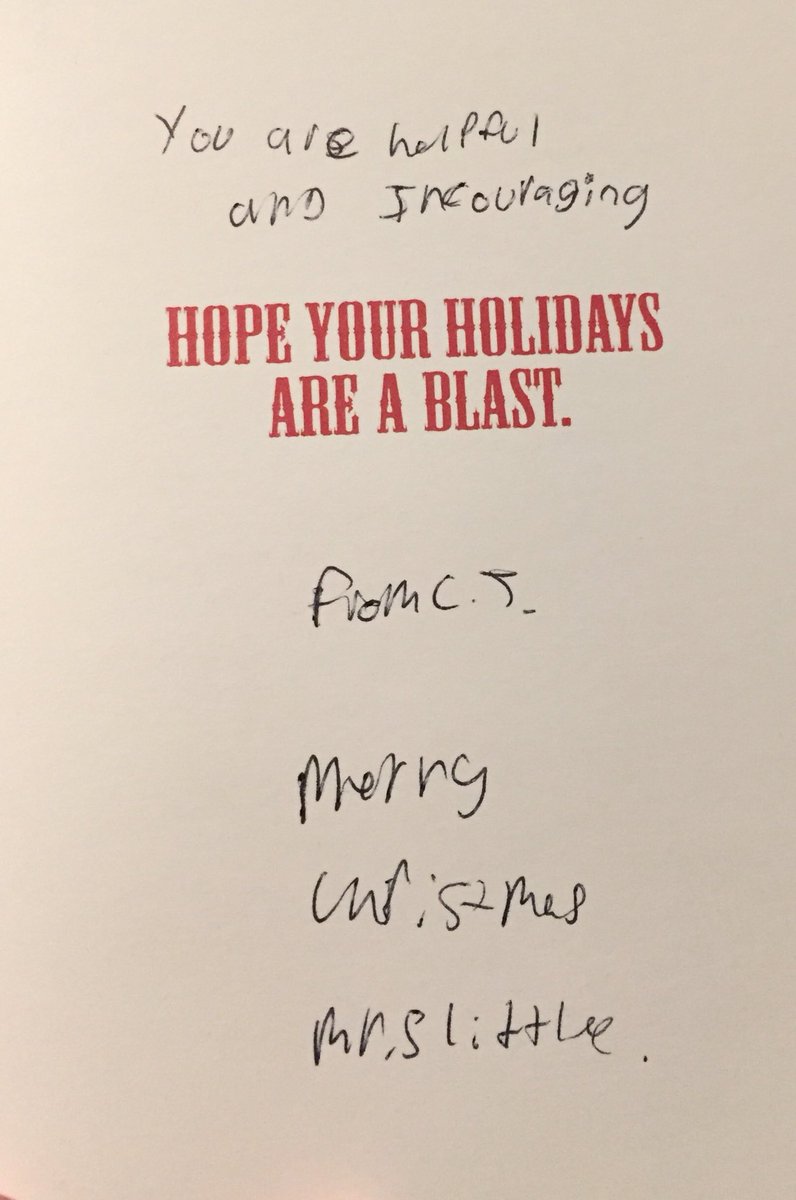 You are helpful
and Incouraging
HOPE YOUR HOLIDAYS
ARE A BLAST.
From C.J.
Merry
Christmas
Mr.s little.